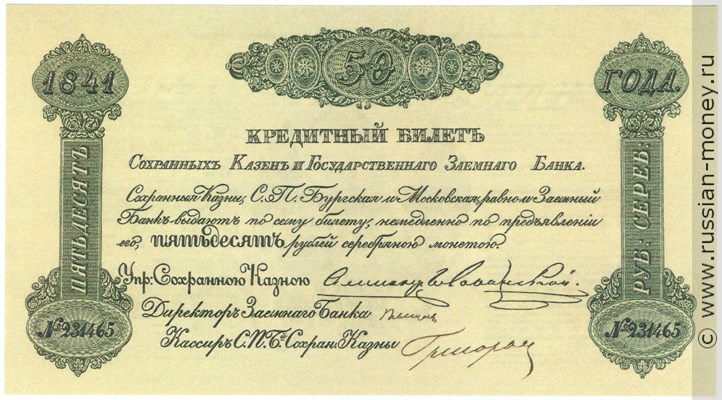 50
1841
ГОДА.
КРЕДИТНЫЙ БИЛЕТЪ
СОХРАННЫХЪ КАЗЕНЪ И ГОСУДАРСТВЕННАГО ЗАЕМНАГО БАНКА.
Сохранныя Казны, С.П. Бургская и Московская, равно и Заемный
Банкъ выдаютъ по сему билету, немедленно по предъявленіи
его, ПЯТЬДЕСЯТЪ рублей серебряною монетою.
Упр: Сохранною Казною
Директоръ Заемнаго Банка
Кассиръ С.П.Б. Сохран: Казны
ПЯТЬДЕСЯТЪ
РУБ: СЕРЕБ:
№ 231465
№ 231465
© www.russian-money.ru